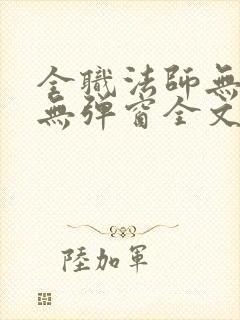 全職法師無
無彈窗全文
陸加軍